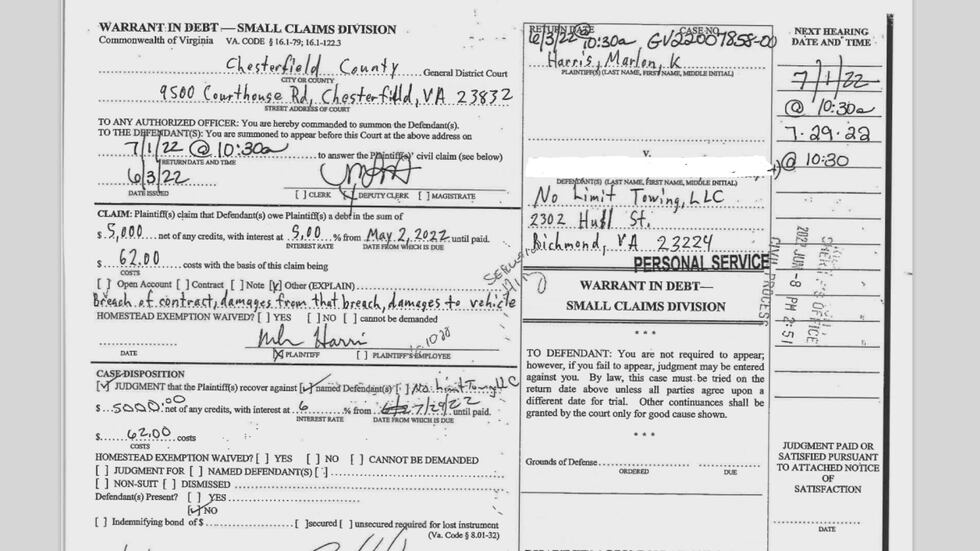 WARRANT IN DEBT—SMALL CLAIMS DIVISION
Commonwealth of Virginia VA. CODE § 16.1-79; 16.1-122.3
Chesterfield County General District Court
CITY OR COUNTY
9500 Courthouse Rd, Chesterfield, VA 23832
STREET ADDRESS OF COURT
TO ANY AUTHORIZED OFFICER: You are hereby commanded to summon the Defendant(s).
TO THE DEFENDANT(S): You are summoned to appear before this Court at the above address on
7/1/22 @ 10:30a to answer the Plaintiff(s)' civil claim (see below)
RETURN DATE AND TIME
6/3/22
DATE ISSUED [ ] CLERK [ ] DEPUTY CLERK [ ] MAGISTRATE
CLAIM: Plaintiff(s) claim that Defendant(s) owe Plaintiff(s) a debt in the sum of
$ 5,000 net of any credits, with interest at 5.00 % from May 2, 2022 until paid.
INTEREST RATE DATE FROM WHICH IS DUE
$ 62.00 costs with the basis of this claim being
COSTS
[ ] Open Account [ ] Contract [ ] Note [✓] Other (EXPLAIN)
Breach of contract, damages from that breach, damages to vehicle
HOMESTEAD EXEMPTION WAIVED? [ ] YES [ ] NO [ ] cannot be demanded
DATE [X] PLAINTIFF [ ] PLAINTIFF'S EMPLOYEE
CASE DISPOSITION
[✓] JUDGMENT that the Plaintiff(s) recover against [✓] named Defendant(s) [ ] No Limit Towing LLC
$ 5000.00 net of any credits, with interest at 6 % from 7/29/22 until paid.
INTEREST RATE DATE FROM WHICH IS DUE
$ 62.00 costs
COSTS
HOMESTEAD EXEMPTION WAIVED? [ ] YES [ ] NO [ ] CANNOT BE DEMANDED
[ ] JUDGMENT FOR [ ] NAMED DEFENDANT(S) [ ]
[ ] NON-SUIT [ ] DISMISSED
Defendant(s) Present? [ ] YES
[✓] NO
[ ] Indemnifying bond of $ [ ] secured [ ] unsecured required for lost instrument
(Va. Code § 8.01-32)
RETURN DATE CASE NO.
6/3/22 10:30a GV22007858-00
Harris, Marlon, K
PLAINTIFF(S) (LAST NAME, FIRST NAME, MIDDLE INITIAL)
V.
DEFENDANT(S) (LAST NAME, FIRST NAME, MIDDLE INITIAL)
No Limit Towing, LLC
2302 Hull St.
Richmond, VA 23224
PERSONAL SERVICE
WARRANT IN DEBT—
SMALL CLAIMS DIVISION
* * *
TO DEFENDANT: You are not required to appear;
however, if you fail to appear, judgment may be entered
against you. By law, this case must be tried on the
return date above unless all parties agree upon a
different date for trial. Other continuances shall be
granted by the court only for good cause shown.
* * *
Grounds of Defense
ORDERED DUE
NEXT HEARING
DATE AND TIME
7/1/22
@ 10:30a
7-29-22
@ 10:30
SHERIFF'S OFFICE
2022 JUN -8 PM 2:51
CIVIL PROCESS
JUDGMENT PAID OR
SATISFIED PURSUANT
TO ATTACHED NOTICE
OF
SATISFACTION
DATE